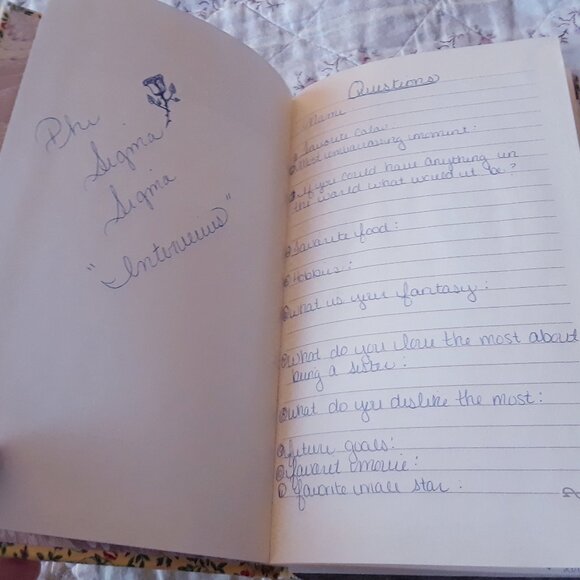 Phi
Sigma
Sigma
"Interviews"
Questions
Name
① favorite color:
② Most embarrassing moment:
③ If you could have anything in
the world what would it be?
④ favorite food:
⑤ Hobbies:
⑥ What is your fantasy:
⑦ What do you love the most about
being a sister:
⑧ What do you dislike the most:
⑨ future goals:
⑩ favorit movie:
⑪ favorite male star: